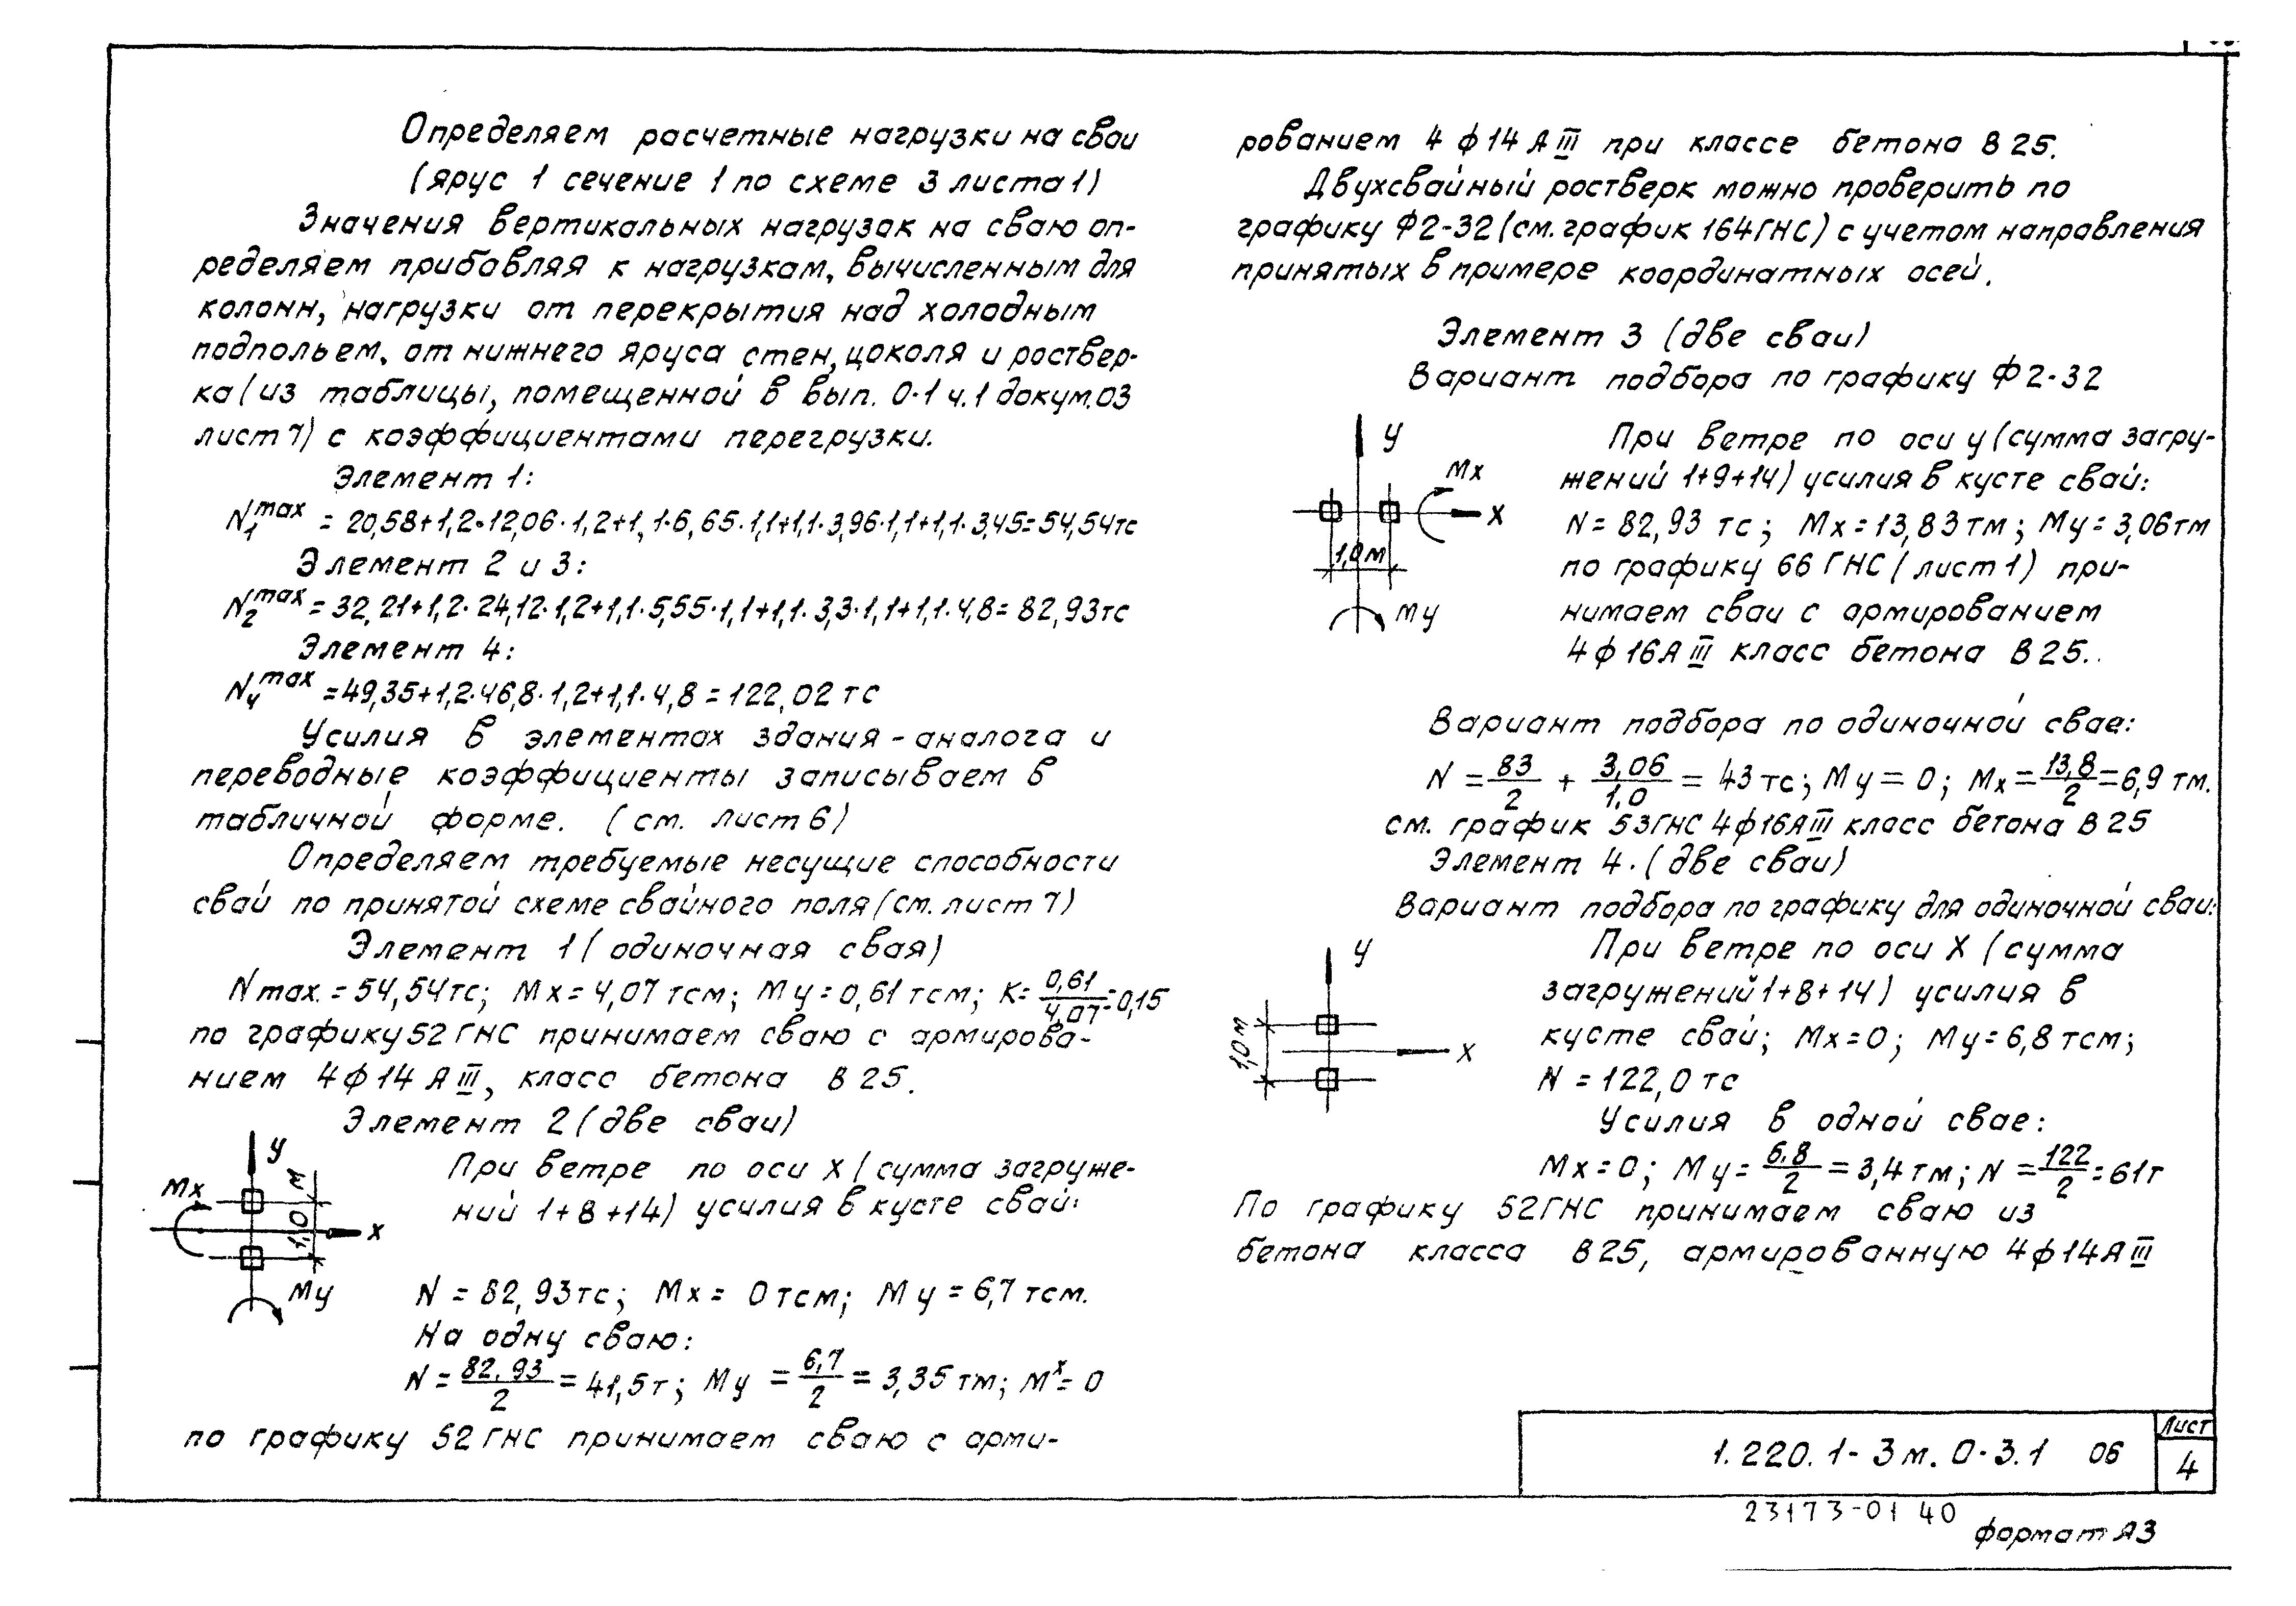 Определяем расчетные нагрузки на сваи
(ярус 1 сечение 1 по схеме 3 листа 1)
Значения вертикальных нагрузок на сваю оп-
ределяем прибавляя к нагрузкам, вычисленным для
колонн, нагрузки от перекрытия над холодным
подпольем, от нижнего яруса стен, цоколя и роствер-
ка (из таблицы, помещенной в вып. 0-1 ч.1 докум.03
лист 7) с коэффициентами перегрузки.
Элемент 1:
N₁max = 20,58+1,2·12,06·1,2+1,1·6,65·1,1+1,1·3,96·1,1+1,1·3,45=54,54тс
Элемент 2 и 3:
N₂max = 32,21+1,2·24,12·1,2+1,1·5,55·1,1+1,1·3,3·1,1+1,1·4,8=82,93тс
Элемент 4:
N₄max =49,35+1,2·46,8·1,2+1,1·4,8=122,02 тс
Усилия в элементах здания-аналога и
переводные коэффициенты записываем в
табличной форме. (см. лист 6)
Определяем требуемые несущие способности
свай по принятой схеме свайного поля (см. лист 7)
Элемент 1 (одиночная свая)
Nmax.=54,54тс; Mx=4,07 тсм; My=0,61 тсм; K=0,61/4,07=0,15
по графику 52 ГНС принимаем сваю с армирова-
нием 4ф14 АIII, класс бетона В 25.
Элемент 2 (две сваи)
У
Mx
1,0 м
X
My
При ветре по оси X (сумма загруже-
ний 1+8+14) усилия в кусте свай:
N=82,93тс; Mx= 0 тсм; My=6,7 тсм.
На одну сваю:
N=82,93/2=41,5т; My =6,7/2=3,35 тм; Mx=0
по графику 52 ГНС принимаем сваю с арми-
рованием 4 ф14 АIII при классе бетона В 25.
Двухсвайный ростверк можно проверить по
графику Ф2-32 (см. график 164ГНС) с учетом направления
принятых в примере координатных осей.
Элемент 3 (две сваи)
Вариант подбора по графику Ф2-32
У
Mx
X
1,0 м
My
При ветре по оси у (сумма загру-
жений 1+9+14) усилия в кусте свай:
N=82,93 тс; Mx=13,83 тм; My=3,06тм
по графику 66 ГНС (лист 1) при-
нимаем сваи с армированием
4ф16АIII класс бетона В 25.
Вариант подбора по одиночной свае:
N=83/2 + 3,06/1,0 = 43 тс; My=0; Mx=13,8/2=6,9 тм.
см. график 53ГНС 4ф16АIII класс бетона В 25
Элемент 4. (две сваи)
Вариант подбора по графику для одиночной сваи:
У
1,0 м
X
При ветре по оси X (сумма
загружений 1+8+14) усилия в
кусте свай; Mx=0; My=6,8 тсм;
N=122,0 тс
Усилия в одной свае:
Mx=0; My=6,8/2=3,4 тм; N=122/2=61т
По графику 52ГНС принимаем сваю из
бетона класса В 25, армированную 4ф14АIII
1.220.1-3м.0-3.1 06
Лист
4
23173-01 40
формат А3